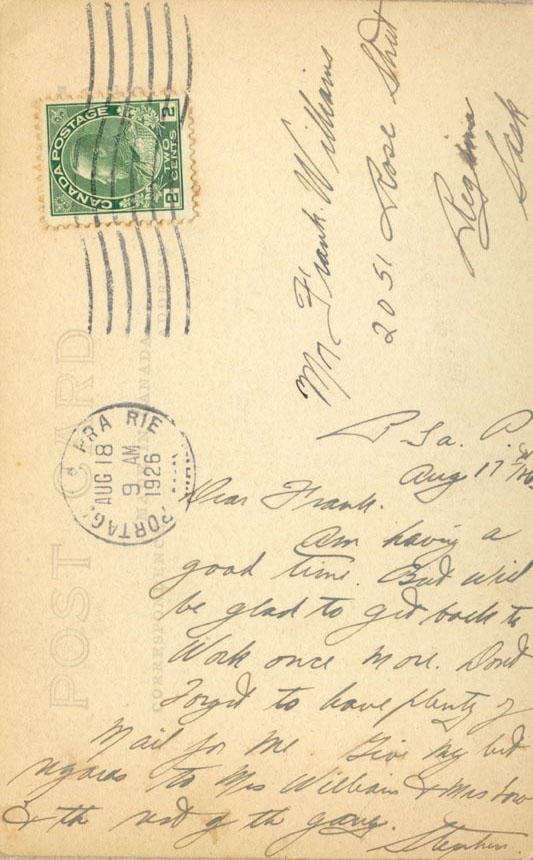 CANADA POSTAGE
2 TWO CENTS 2
POST CARD
CORRESPONDENCE
PORTAGE PRAIRIE
AUG 18
9 AM
1926
MAN
Mr Frank Williams
2051 Rose Street
Regina
Sask
P La. P.
Aug 17th
Dear Frank.
Am having a
good time. But will
be glad to get back to
Work once more. Dont
Forget to have plenty of
Mail for Me Give My best
regards to Mrs Williams & Mrs
& the rest of the gang.
Stephen.